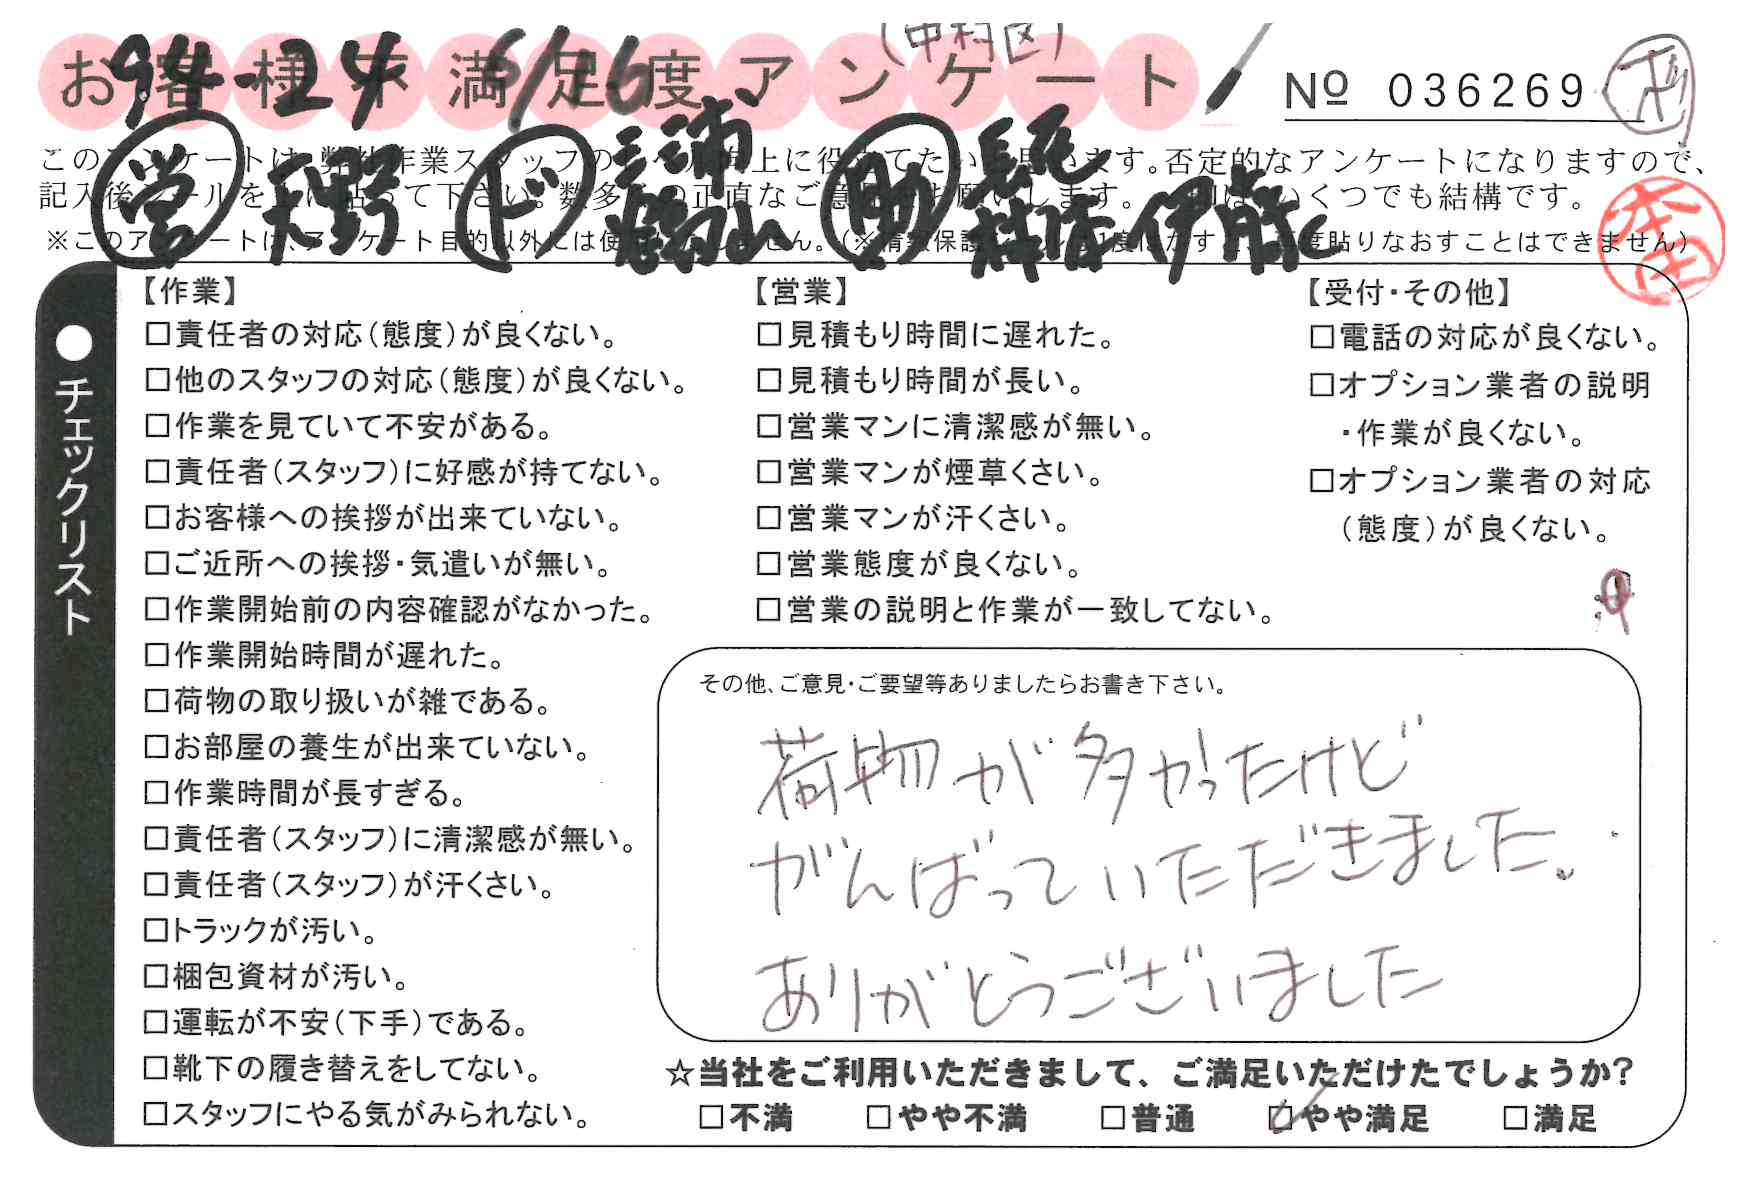 (中村区)
お客様不満足度アンケート
94-24 6/16
No 036269
このアンケートは、弊社作業スタッフの向上に役立てたいと思います。否定的なアンケートになりますので、
記入後シールを上に貼って下さい。数多くの正直なご意見をお願いします。いくつでも結構です。
※このアンケートは、アンケート目的以外には使用いたしません。(※情報保護シールは1度はがすと、再度貼りなおすことはできません)
営 天野 ド 三浦 助 長尾 伊藤
本田
●チェックリスト
【作業】
□責任者の対応(態度)が良くない。
□他のスタッフの対応(態度)が良くない。
□作業を見ていて不安がある。
□責任者(スタッフ)に好感が持てない。
□お客様への挨拶が出来ていない。
□ご近所への挨拶・気遣いが無い。
□作業開始前の内容確認がなかった。
□作業開始時間が遅れた。
□荷物の取り扱いが雑である。
□お部屋の養生が出来ていない。
□作業時間が長すぎる。
□責任者(スタッフ)に清潔感が無い。
□責任者(スタッフ)が汗くさい。
□トラックが汚い。
□梱包資材が汚い。
□運転が不安(下手)である。
□靴下の履き替えをしてない。
□スタッフにやる気がみられない。
【営業】
□見積もり時間に遅れた。
□見積もり時間が長い。
□営業マンに清潔感が無い。
□営業マンが煙草くさい。
□営業マンが汗くさい。
□営業態度が良くない。
□営業の説明と作業が一致してない。
【受付・その他】
□電話の対応が良くない。
□オプション業者の説明
・作業が良くない。
□オプション業者の対応
(態度)が良くない。
その他、ご意見・ご要望等ありましたらお書き下さい。
荷物が多かったけど
がんばっていただきました。
ありがとうございました
☆当社をご利用いただきまして、ご満足いただけたでしょうか?
□不満 □やや不満 □普通 □やや満足 □満足